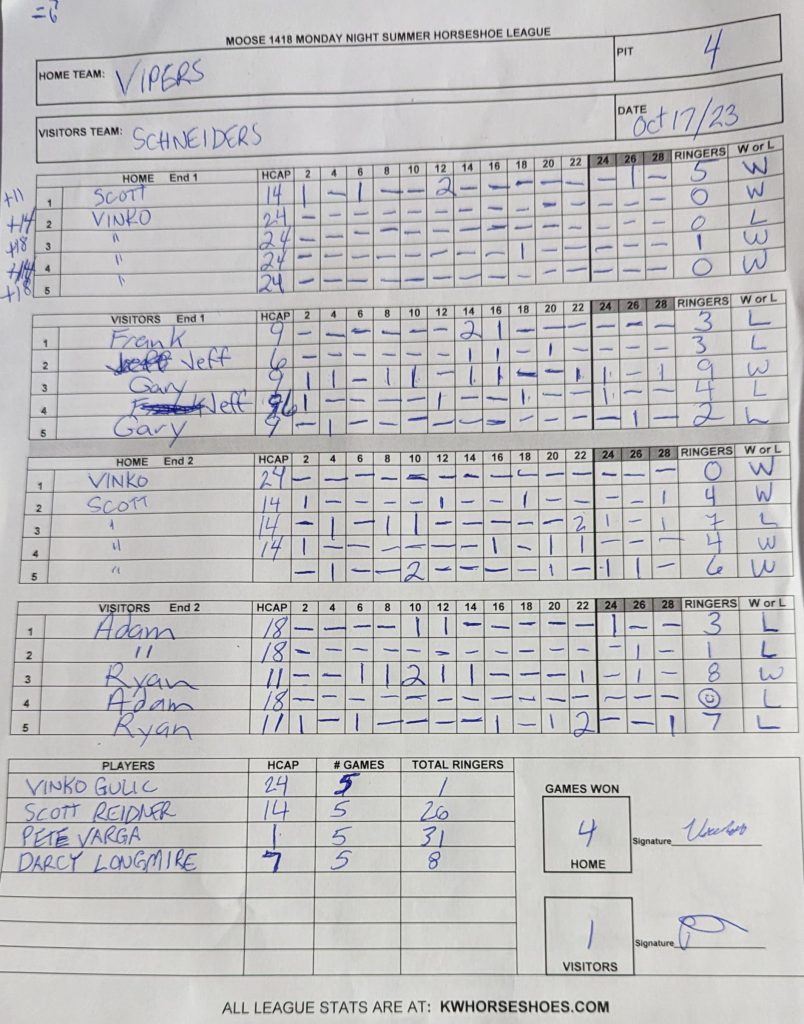 =6
MOOSE 1418 MONDAY NIGHT SUMMER HORSESHOE LEAGUE
HOME TEAM: VIPERS PIT 4
VISITORS TEAM: SCHNEIDERS DATE Oct 17/23
HOME End 1 HCAP 2 4 6 8 10 12 14 16 18 20 22 24 26 28 RINGERS W or L
+11 1 SCOTT 14 1 - 1 - - 2 - - - - - - 1 - 5 W
+14 2 VINKO 24 - - - - - - - - - - - - - - 0 W
+18 3 " 24 - - - - - - - - - - - - - - 0 L
+14 4 " 24 - - - - - - - - 1 - - - - - 1 W
+18 5 " 24 - - - - - - - - - - - - - - 0 W
VISITORS End 1 HCAP 2 4 6 8 10 12 14 16 18 20 22 24 26 28 RINGERS W or L
1 Frank 9 - - - - - - 2 1 - - - - - - 3 L
2 Jeff 6 - - - - - - 1 1 - 1 - - - - 3 L
3 Gary 9 1 1 - 1 1 - 1 1 - - 1 1 - 1 9 W
4 Jeff 6 1 - - - - 1 - - 1 - - 1 - - 4 L
5 Gary 9 - 1 - - - - - - - - - - 1 - 2 L
HOME End 2 HCAP 2 4 6 8 10 12 14 16 18 20 22 24 26 28 RINGERS W or L
1 VINKO 24 - - - - - - - - - - - - - - 0 W
2 SCOTT 14 1 - - - - 1 - - 1 - - - - 1 4 W
3 " 14 - 1 - 1 1 - - - - - 2 1 - 1 7 L
4 " 14 1 - - - - - - 1 - 1 1 - - - 4 W
5 " - 1 - - 2 - - - - 1 - 1 1 - 6 W
VISITORS End 2 HCAP 2 4 6 8 10 12 14 16 18 20 22 24 26 28 RINGERS W or L
1 Adam 18 - - - - 1 1 - - - - - 1 - - 3 L
2 " 18 - - - - - - - - - - - - 1 - 1 L
3 Ryan 11 - - 1 1 2 1 1 - - - 1 - 1 - 8 W
4 Adam 18 - - - - - - - - - - - - - - 0 L
5 Ryan 11 1 - 1 - - - - 1 - 1 2 - - 1 7 L
PLAYERS HCAP # GAMES TOTAL RINGERS
VINKO GULIC 24 5 1
SCOTT REIDNER 14 5 26
PETE VARGA 1 5 31
DARCY LONGMIRE 7 5 8
GAMES WON
4 Signature
HOME
1 Signature
VISITORS
ALL LEAGUE STATS ARE AT: KWHORSESHOES.COM